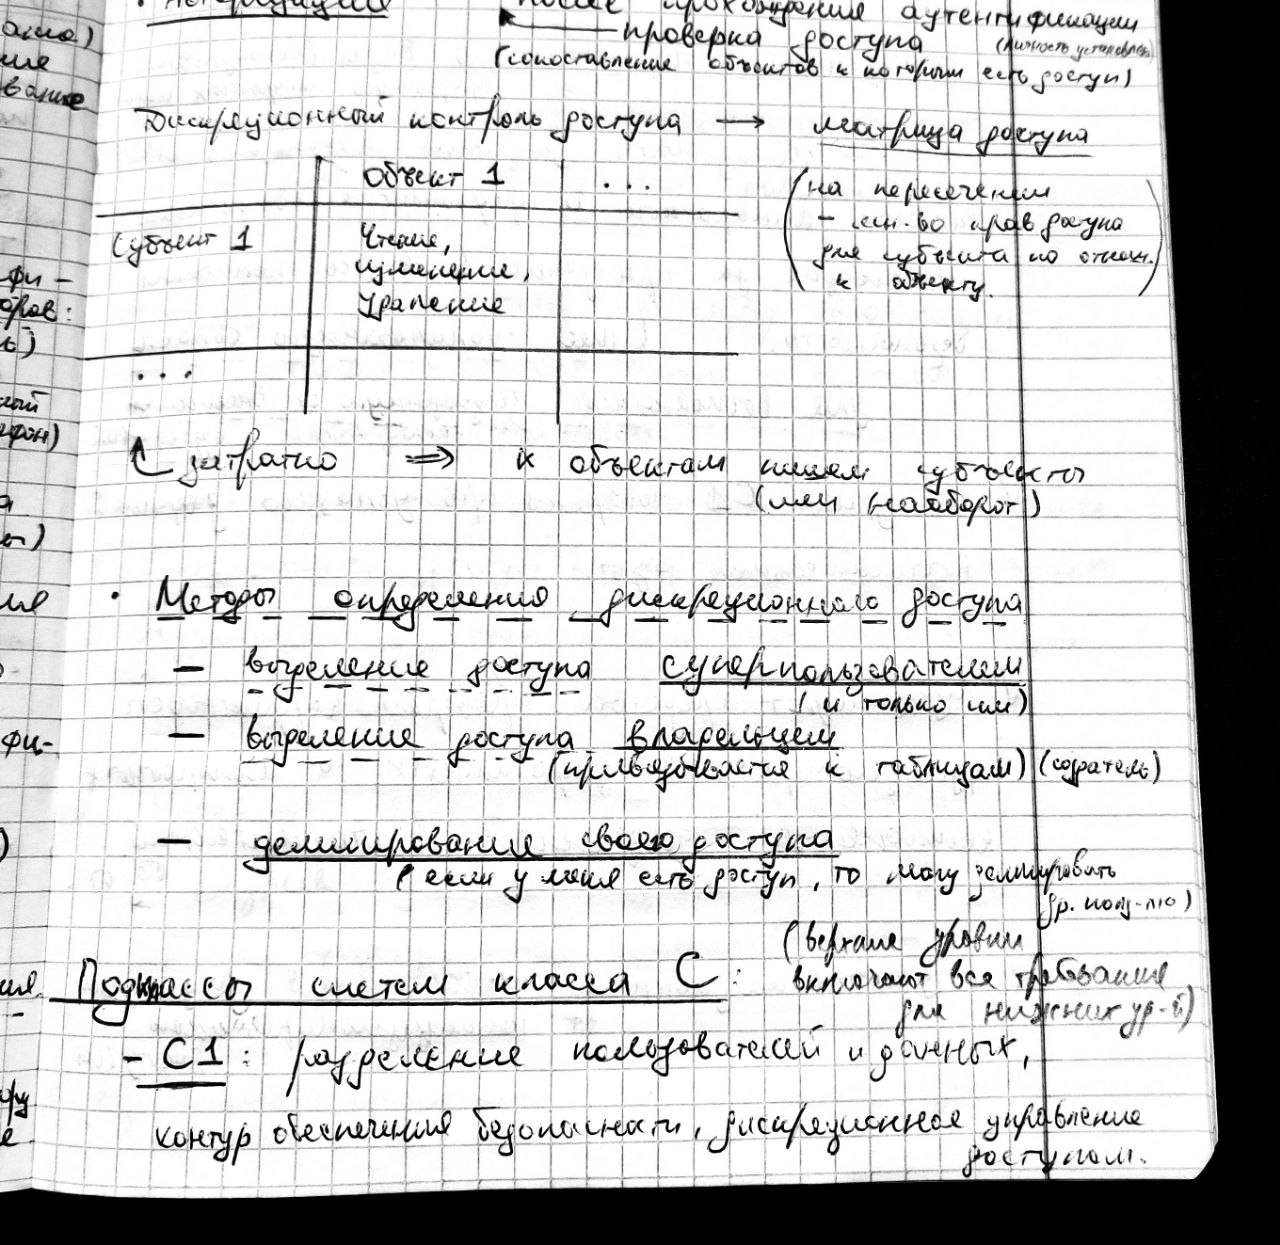 после прохождения аутентификации
проверка доступа (личность установлена)
(сопоставление объектов к которым есть доступ)
Дискреционный контроль доступа → матрица доступа
Объект 1 ...
Субъект 1 Чтение,
изменение,
удаление
...
(на пересечении
- мн-во прав доступа
для субъекта по отнош.
к объекту.)
затратно ⇒ к объектам пишем субъекты
(или наоборот)
• Методы определения дискреционного доступа
— выделение доступа суперпользователем
(и только им)
— выделение доступа владельцем
(привязывается к таблицам) (создатель)
— делегирование своего доступа
(если у меня есть доступ, то могу делегировать
др. польз-лю)
(верхние уровни
Подклассы систем класса С: включают все требования
для нижних ур-й)
- С1: разделение пользователей и данных,
контур обеспечения безопасности, дискреционное управление
доступом.